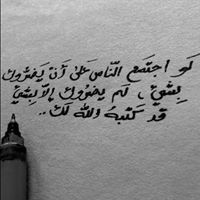 لَو اجتمَع النَّاس عَلىٰ أَن يَضرُّوك
بِشيءٍ ، لَم يضرُّوك إلَّا بِشيءٍ
قَد كتبَهُ الله لَك ..